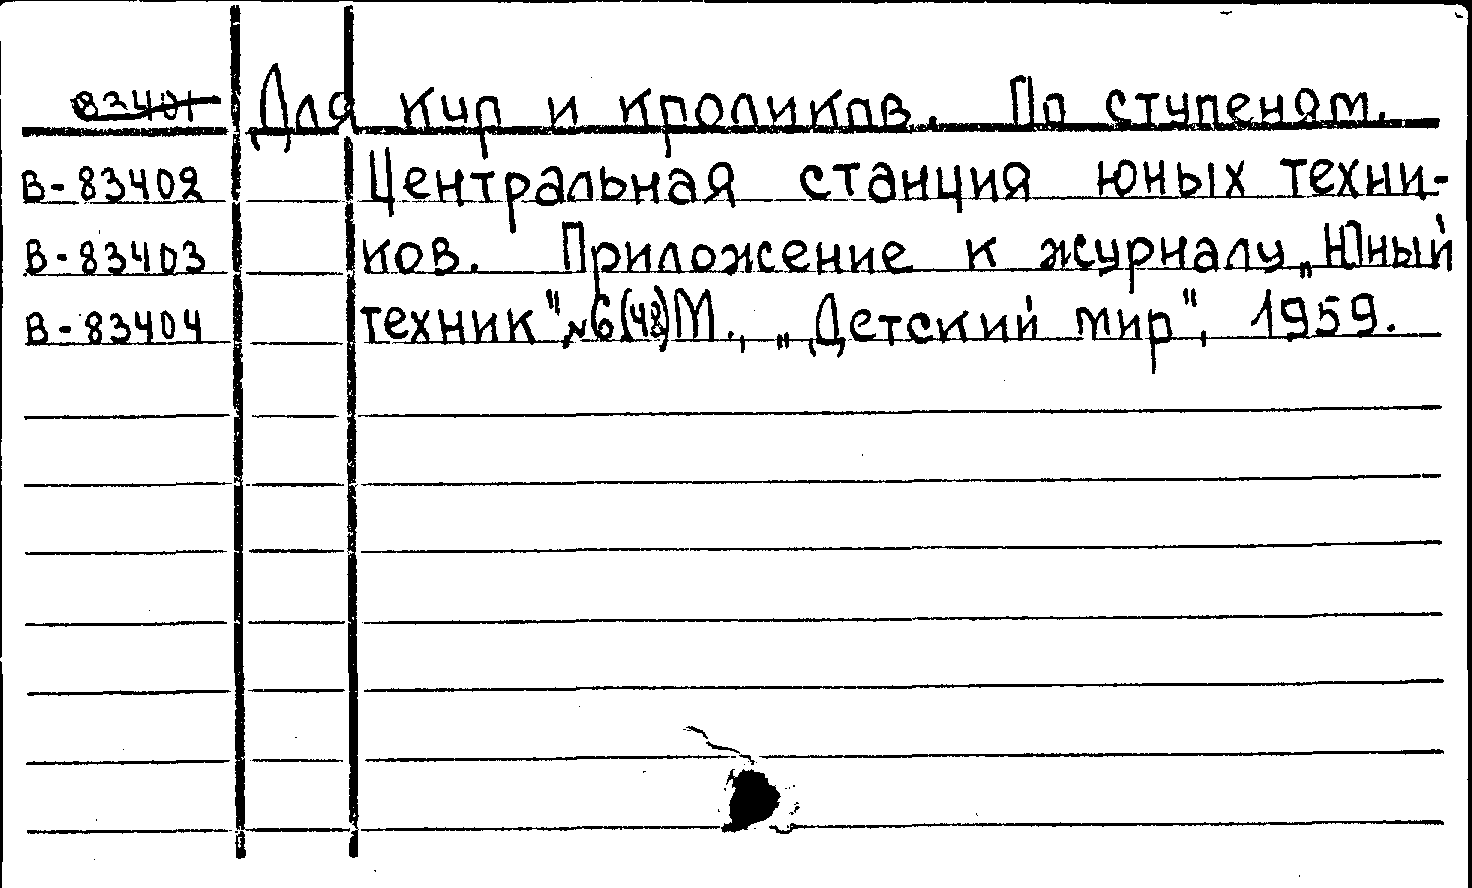 83401 Для кур и кроликов. По ступеням.
В-83402 Центральная станция юных техни-
В-83403 ков. Приложение к журналу „Юный
В-83404 техник" №6(48) М., „Детский мир", 1959.